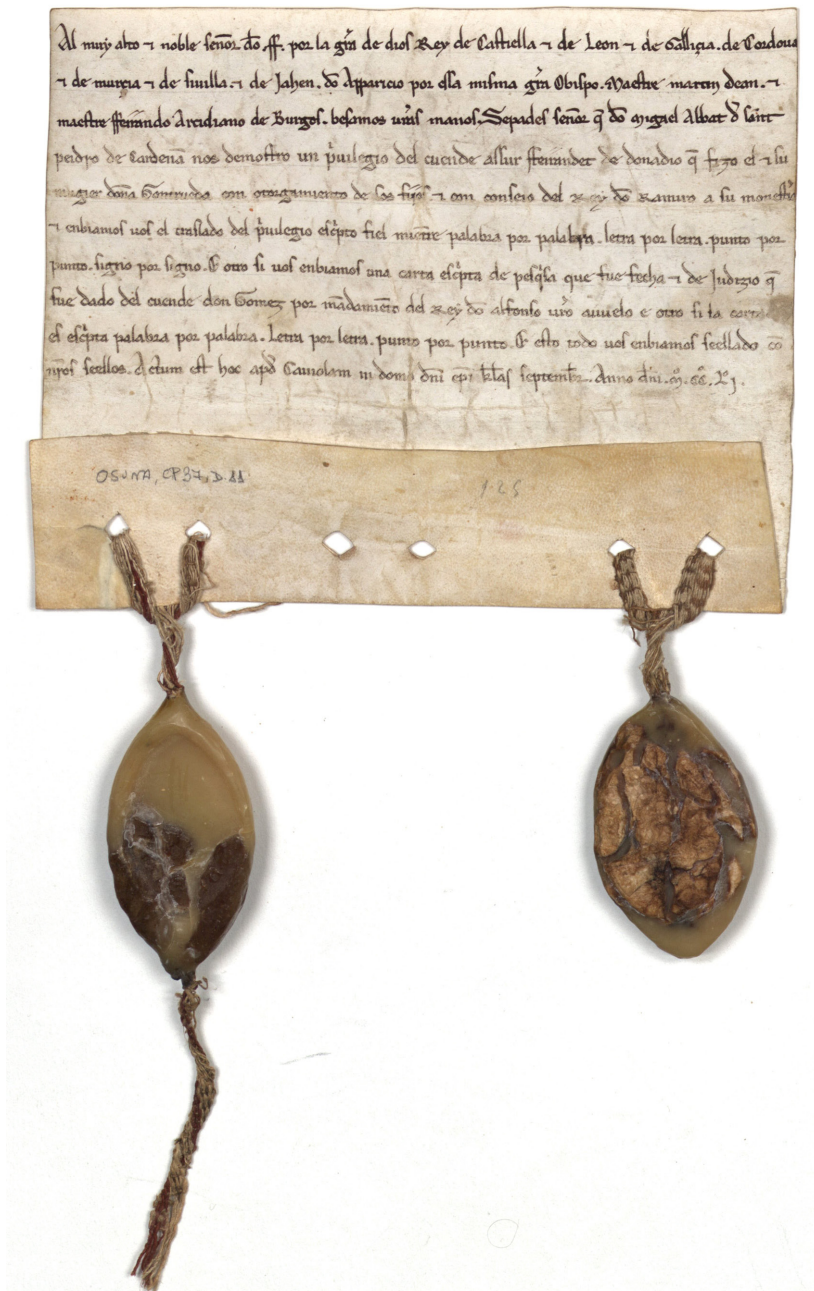 Al muy alto ⁊ noble señor dō .ff. por la gr̄a de dios Rey de Castiella ⁊ de Leon ⁊ de Gallizia. de Cordoua
⁊ de murcia ⁊ de siuilla. ⁊ de Jahen. dō Apparicio por essa misma gr̄a Obispo. Maestre martin dean. ⁊
maestre fferrando Arcidiano de Burgos. besamos ur̄as manos. Sepades señor q̄ dō migael Abbat d̄ sant
peidro de Cardena nos demostro un p̄uilegio del cuende assur fferrandet de donadio q̄ fizo el ⁊ su
mugier dona Gontrueda con otorgamiento de sos fijos ⁊ con conseio del Rey dō Ramiro a su
⁊ enbiamos uos el traslado del p̄uilegio esc̄pto fiel mientre palabra por palabra. letra por letra. punto por
punto. signo por signo. E otro si uos enbiamos una carta esc̄pta de pesq̄sa que fue fecha ⁊ de Judizio q̄
fue dado del cuende don Gomez por mādamiēto del Rey dō alfonso ur̄o auuelo e otro si la carta
es esc̄pta palabra por palabra. Letra por letra. punto por punto. E esto todo uos enbiamos seellado cō
nr̄os seellos. Actum est hoc apd̄ in domo dn̄i ep̄i kl̄as septembr̄. Anno dn̄i. m̊. cc̊. Lº j.
OSUNA, CP37, D.11